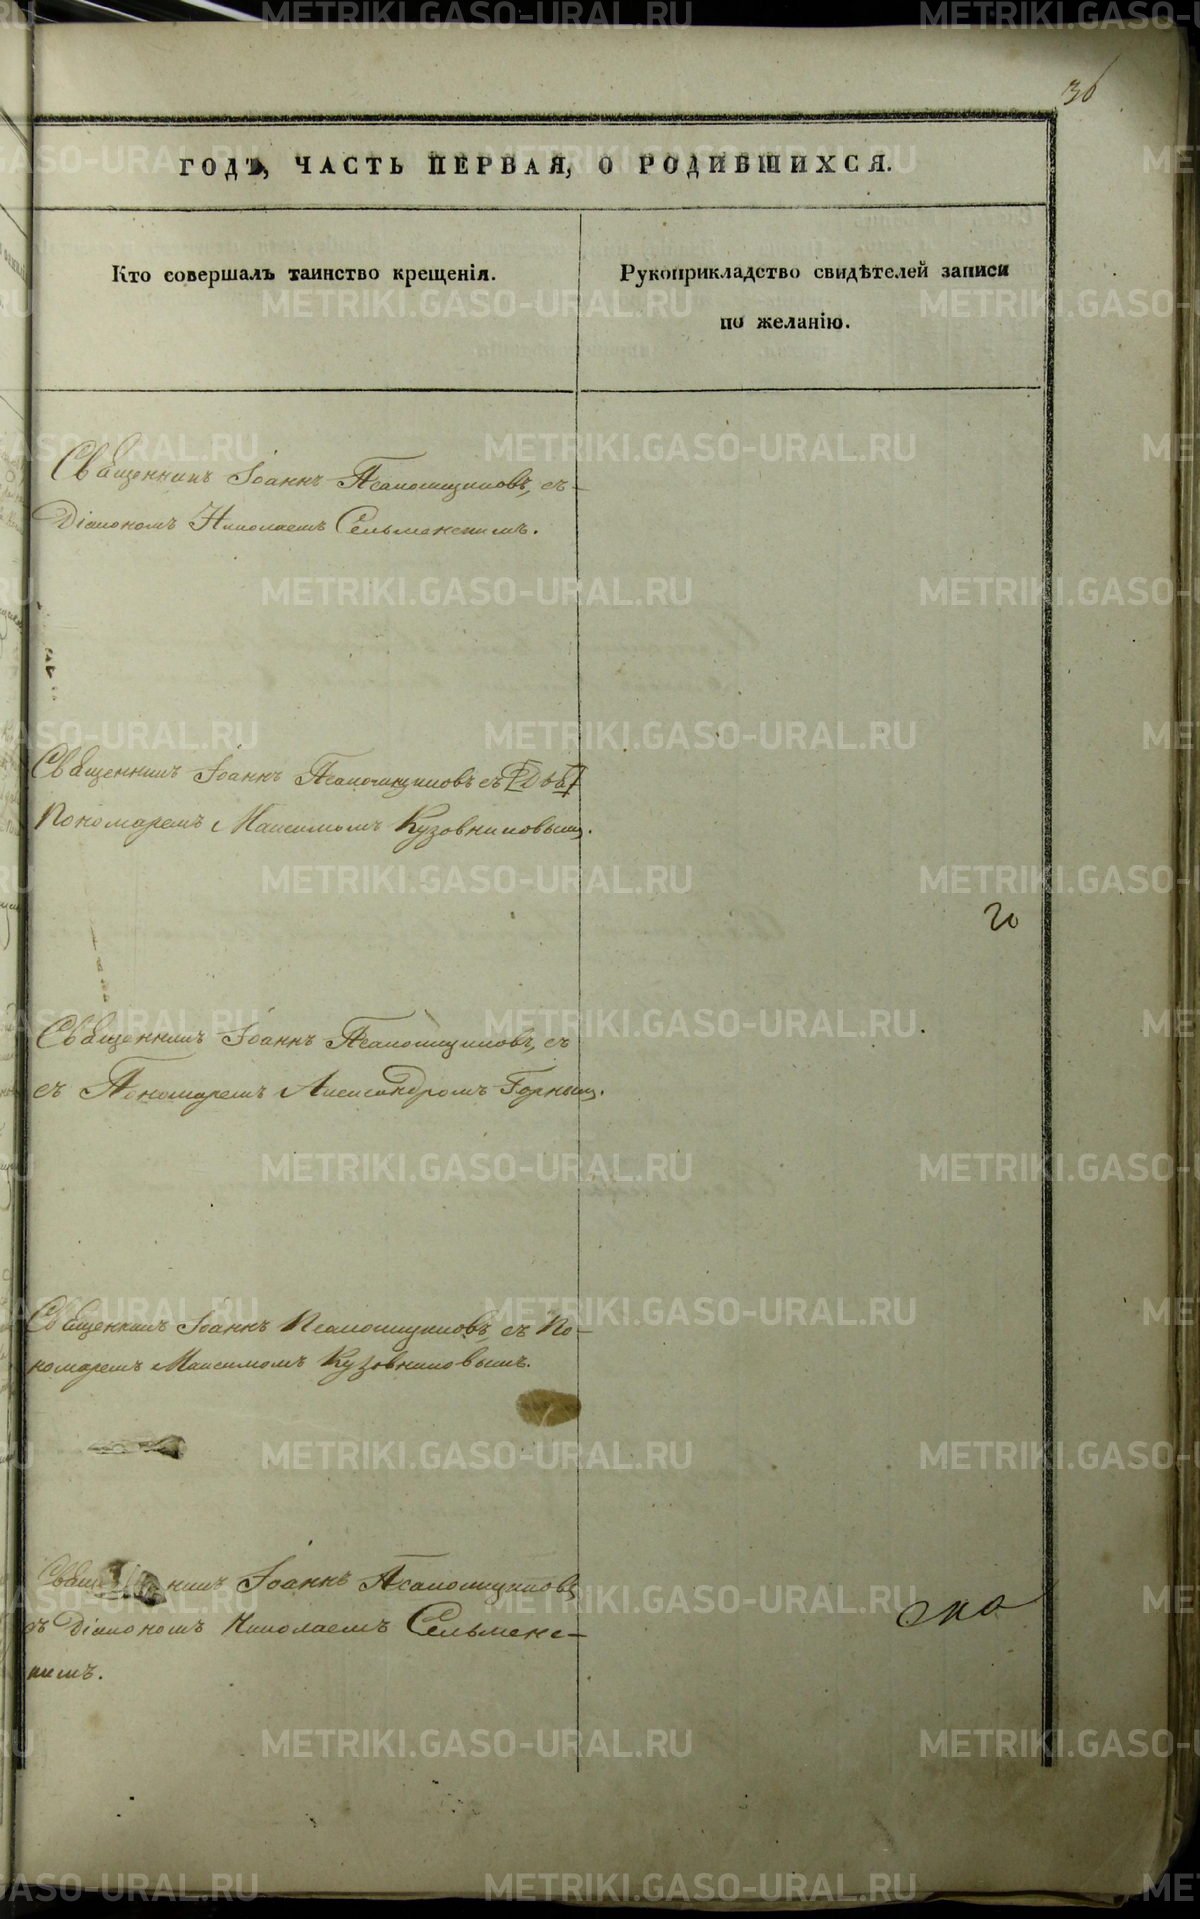 36
ГОДЪ, ЧАСТЬ ПЕРВАЯ, О РОДИВШИХСЯ.
Кто совершалъ таинство крещенія.
Рукоприкладство свидѣтелей записи
по желанію.
Священникъ Іоаннъ Псаломщиковъ, съ
Діакономъ Николаемъ Сельменскимъ.
Священникъ Іоаннъ Псаломщиковъ съ
Пономаремъ Максимомъ Кузовниковымъ.
Священникъ Іоаннъ Псаломщиковъ, съ
съ Пономаремъ Александромъ Горнымъ.
Священникъ Іоаннъ Псаломщиковъ, съ По-
номаремъ Максимомъ Кузовниковымъ.
никъ Іоаннъ Псаломщиковъ
съ Діакономъ Николаемъ Сельменс-
кимъ.
METRIKI.GASO-URAL.RU